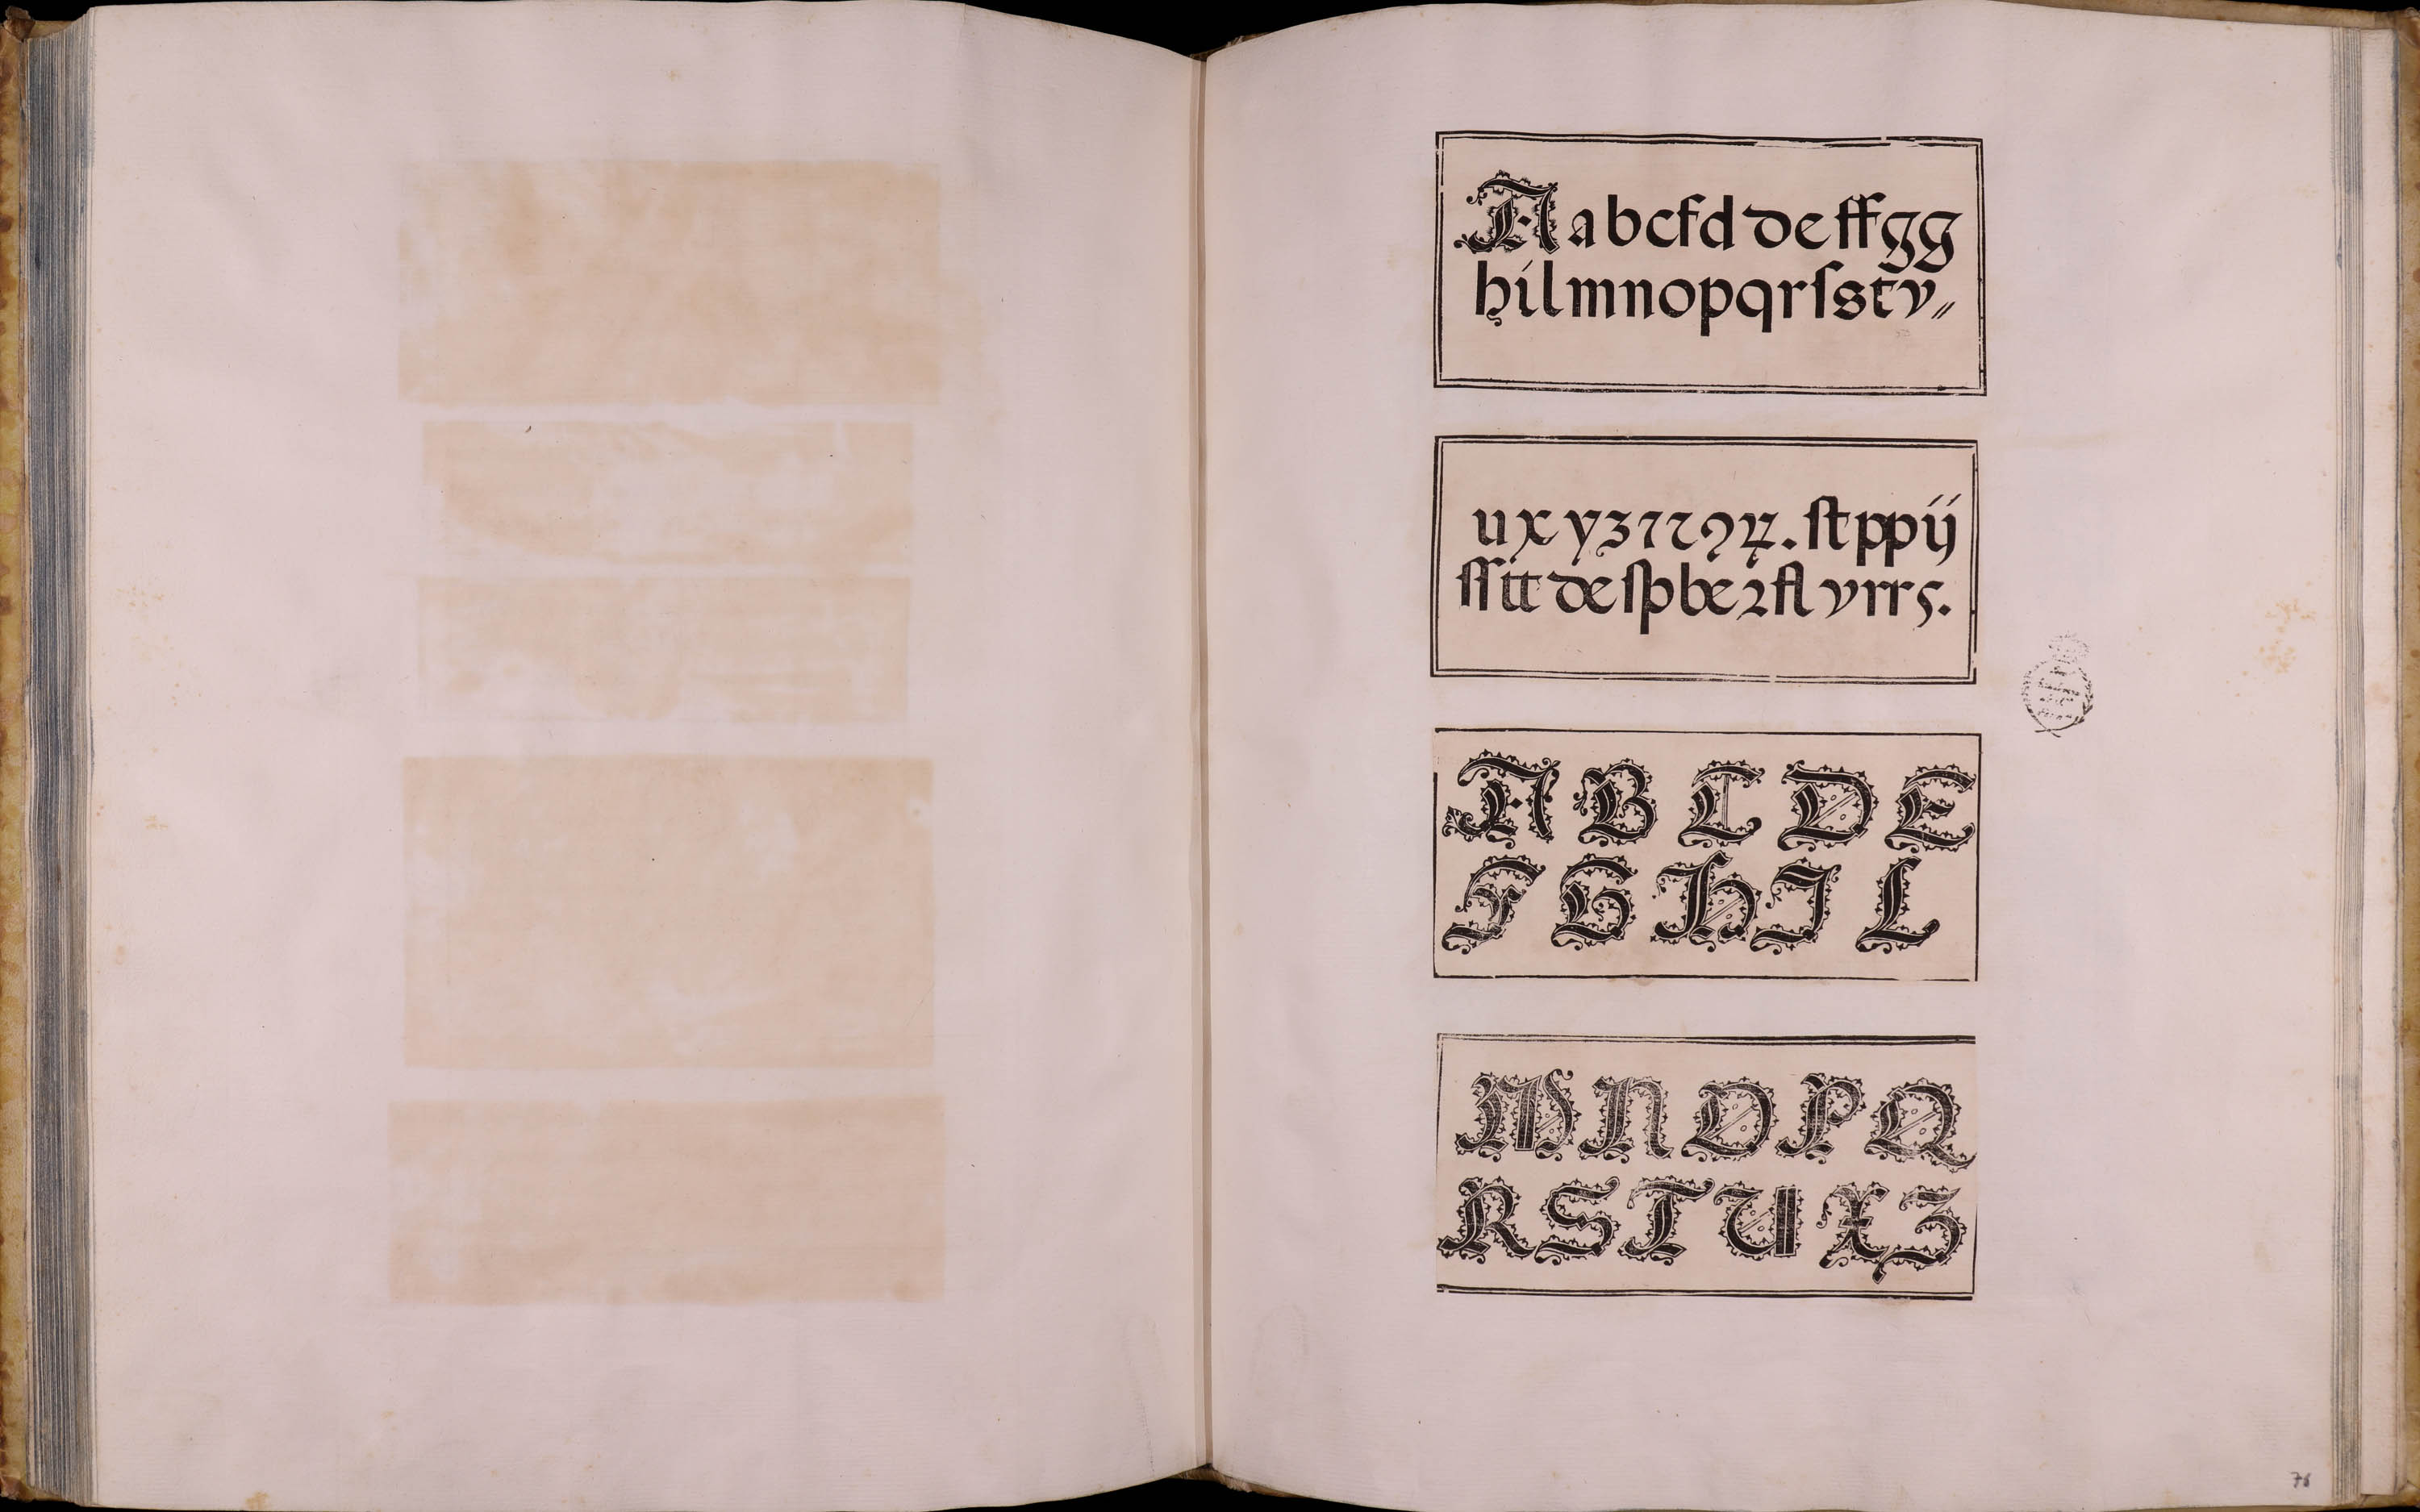 A a b c f d d e ff g g
h i l m n o p q r ſ s t v //
u x y z 7 . ſt pp ij
ſſ tt de ſp be ꝛ fl v rr s .
A B C D E
F G H I L
M N O P Q
R S T U X Z
76